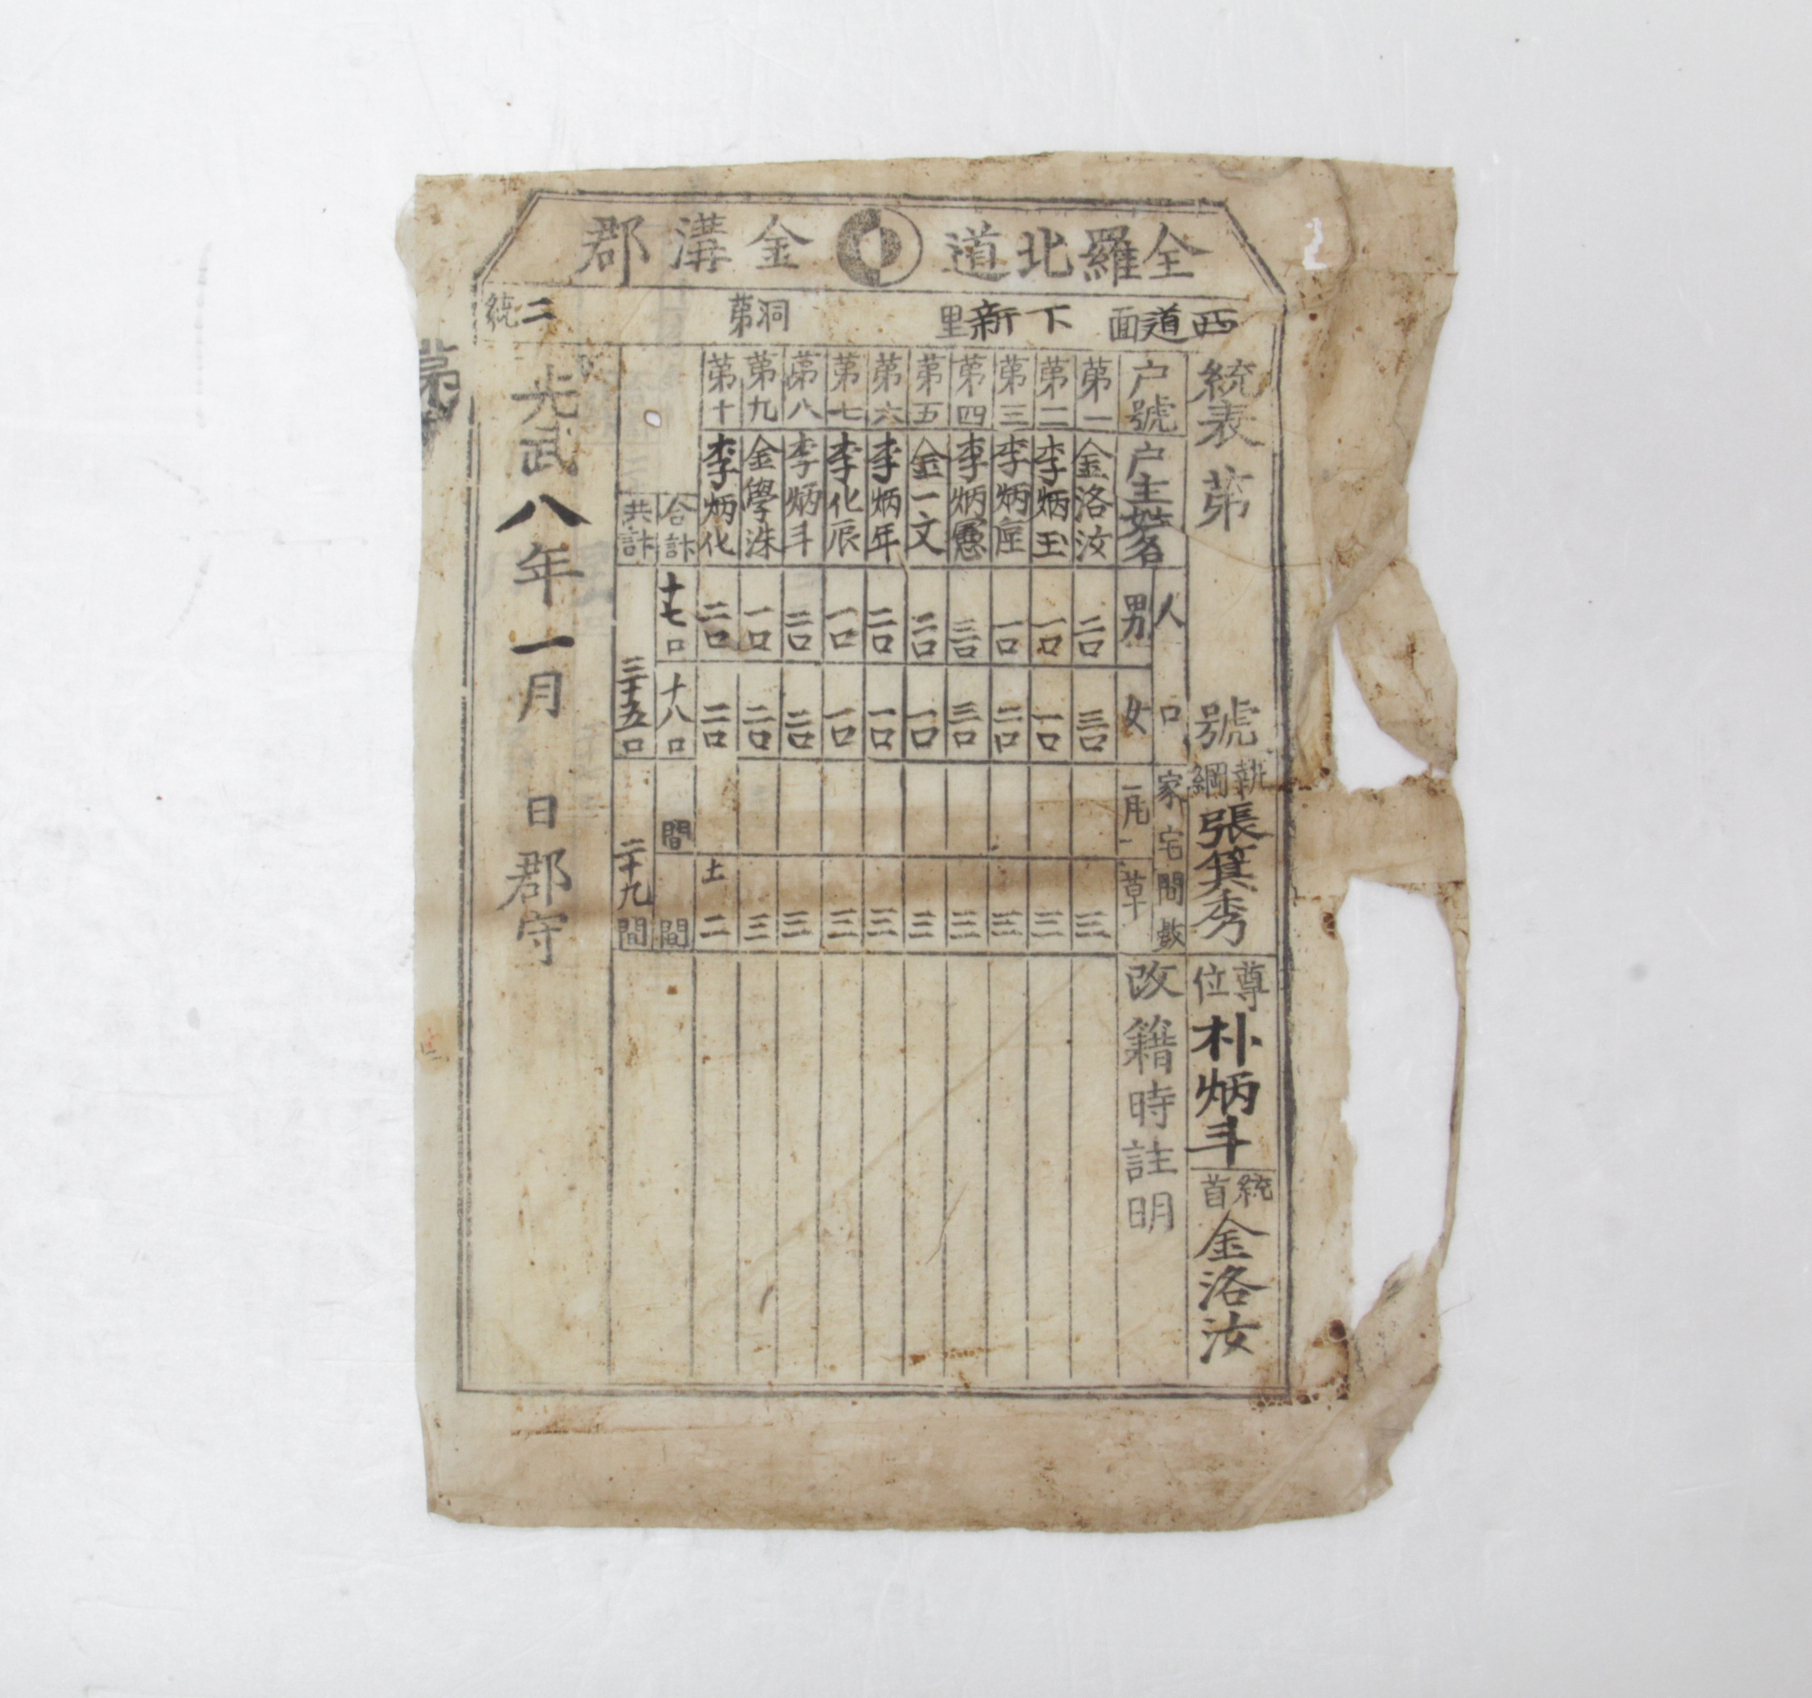 全羅北道 金溝郡
西道面 下新里 洞第 二統
統表第 號 執綱 張箕秀 尊位 朴炳斗 統首 金洛汝
人口 家宅間數
户號 户主姓名 男 女 瓦 草 改籍時註明
第一 金洛汝 二口 三口 三
第二 李炳玉 一口 一口 三
第三 李炳 一口 二口 三
第四 李炳憲 三口 三口 三
第五 金一文 二口 一口 三
第六 李炳年 二口 一口 三
第七 李化辰 一口 一口 三
第八 李炳斗 二口 二口 三
第九 金學洙 一口 二口 三
第十 李炳化 二口 二口 土二
合計 十七口 十八口 間 間
共計 三十五口 二十九間
光武八年一月 日郡守
第